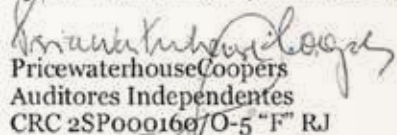 PricewaterhouseCoopers
PricewaterhouseCoopers
Auditores Independentes
CRC 2SP000160/O-5 “F” RJ